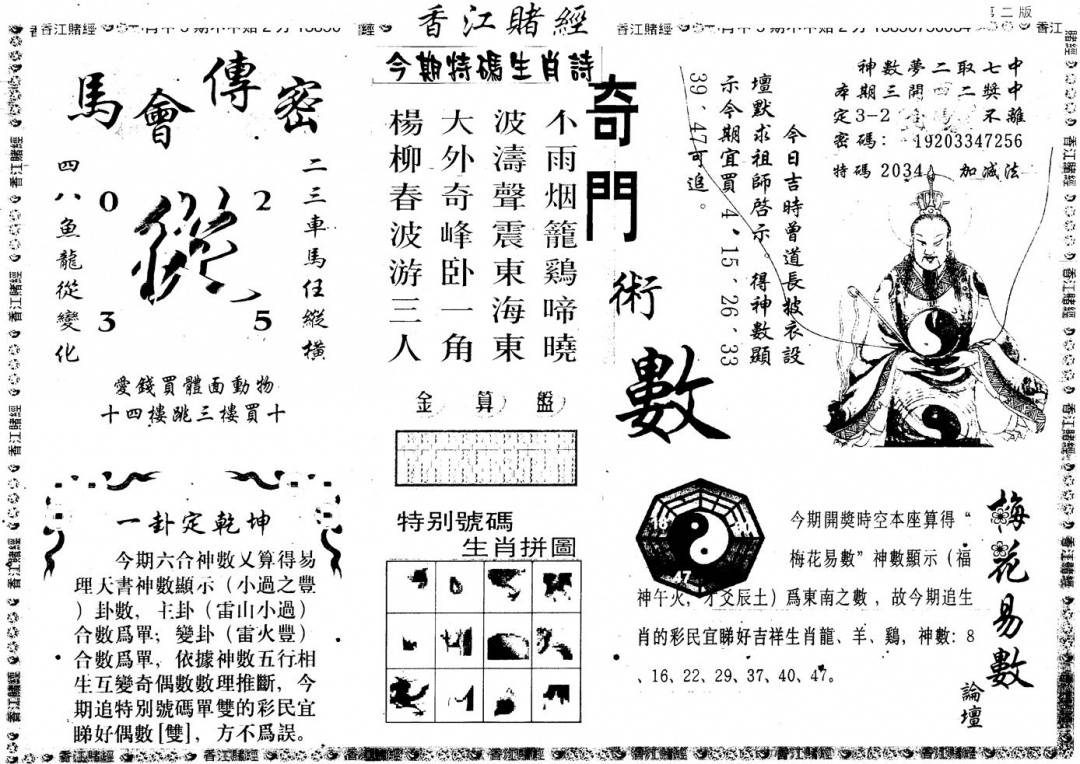 香江賭經
第二版
馬會傳密
二三車馬任縱橫
四八魚龍從變化
0
2
從
3
5
愛錢買體面動物
十四樓跳三樓買十
一卦定乾坤
今期六合神數又算得易
理天書神數顯示（小過之豐
）卦數，主卦（雷山小過）
合數爲單；變卦（雷火豐）
合數爲單，依據神數五行相
生互變奇偶數數理推斷，今
期追特別號碼單雙的彩民宜
睇好偶數[雙]，方不爲誤。
今期特碼生肖詩
不雨烟籠鷄啼曉
波濤聲震東海東
大外奇峰卧一角
楊柳春波游三人
金算盤
特别號碼
生肖拼圖
奇門術數
今日吉時曾道長披衣設
壇默求祖師啓示。得神數顯
示今期宜買4、15、26、33
39、47可追。
神數夢二取七中
本期三開四二獎中
定3-2合 不離
密碼：19203347256
特碼2034 加减法
梅花易數
論壇
47
今期開獎時空本座算得“
梅花易數”神數顯示（福
神午火，才爻辰土）爲東南之數，故今期追生
肖的彩民宜睇好吉祥生肖龍、羊、鷄，神數：8
、16、22、29、37、40、47。
香江賭經